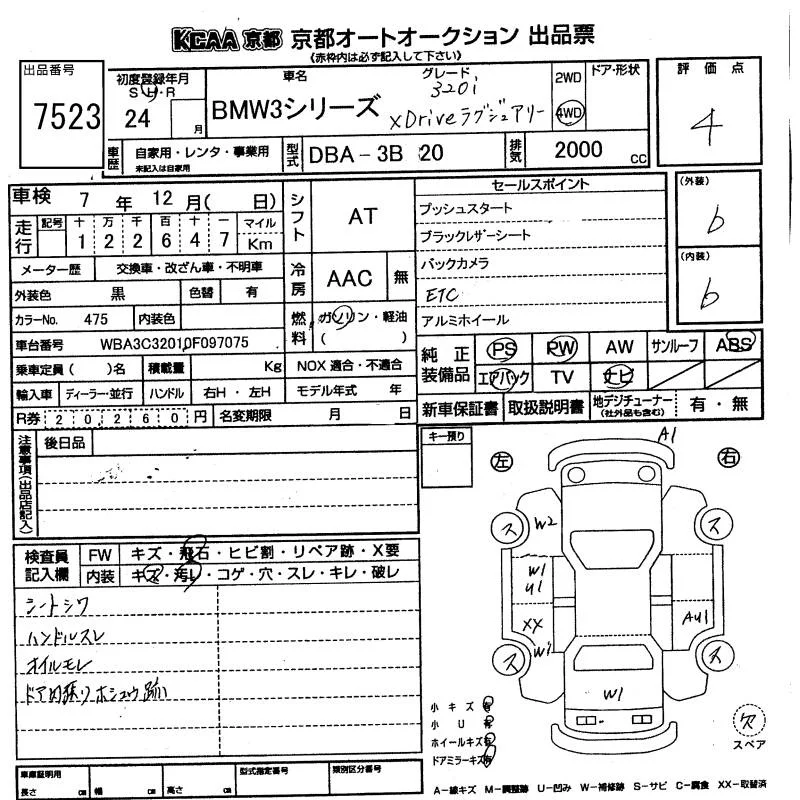 KCAA 京都 京都オートオークション 出品票
(赤枠内は必ず記入して下さい)
出品番号
7523
初度登録年月
S H R
24 月
車名
BMW3シリーズ
グレード
320i
xDriveラグジュアリー
2WD
4WD
ドア・形状
評価点
4
車歴
自家用・レンタ・事業用
未記入は自家用
型式
DBA-3B 20
排気
2000 cc
車検 7 年 12 月( 日)
走行
記号 十 万 千 百 十 一 マイル
1 2 2 6 4 7 Km
シフト
AT
セールスポイント
プッシュスタート
ブラックレザーシート
バックカメラ
ETC
アルミホイール
(外装)
b
(内装)
b
メーター歴 交換車・改ざん車・不明車
冷房
AAC 無
外装色 黒 色替 有
カラーNo. 475 内装色
燃料
ガソリン・軽油
( )
車台番号 WBA3C32010F097075
乗車定員( )名 積載量 Kg NOX 適合・不適合
輸入車 ディーラー・並行 ハンドル 右H・左H モデル年式 年
R券 20,260円 名変期限 月 日
純正装備品
PS PW AW サンルーフ ABS
エアバック TV ナビ
新車保証書 取扱説明書 地デジチューナー (社外品も含む) 有・無
注意事項(出品店記入)
後日品
キー預り
左
右
A1
ス
W2
ス
W1
U1
XX
W1
AU1
ス
ス
W1
検査員記入欄
FW キズ・飛石・ヒビ割・リペア跡・X要
内装 キズ・汚レ・コゲ・穴・スレ・キレ・破レ
シートシワ
ハンドルスレ
オイルモレ
ドア内張りホシュウ跡
小キズ 有
小U 有
ホイールキズ 有
ドアミラーキズ 有
欠
スペア
車庫証明用
長さ cm 幅 cm 高さ cm
型式指定番号
類別区分番号
A-線キズ M-調整跡 U-凹み W-補修跡 S-サビ C-腐食 XX-取替済